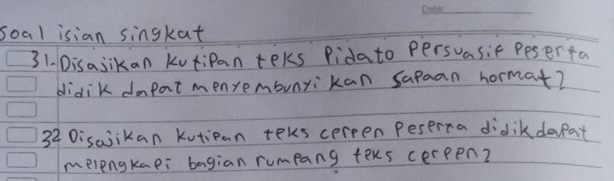 Date:
soal isian singkat
31. Disajikan kutipan teks Pidato Persuasif Peserta
didik dapat menyembunyikan sapaan hormat?
32 Disajikan kutipan teks cerpen Peserta didik dapat
melengkapi bagian rumpang teks cerpen?